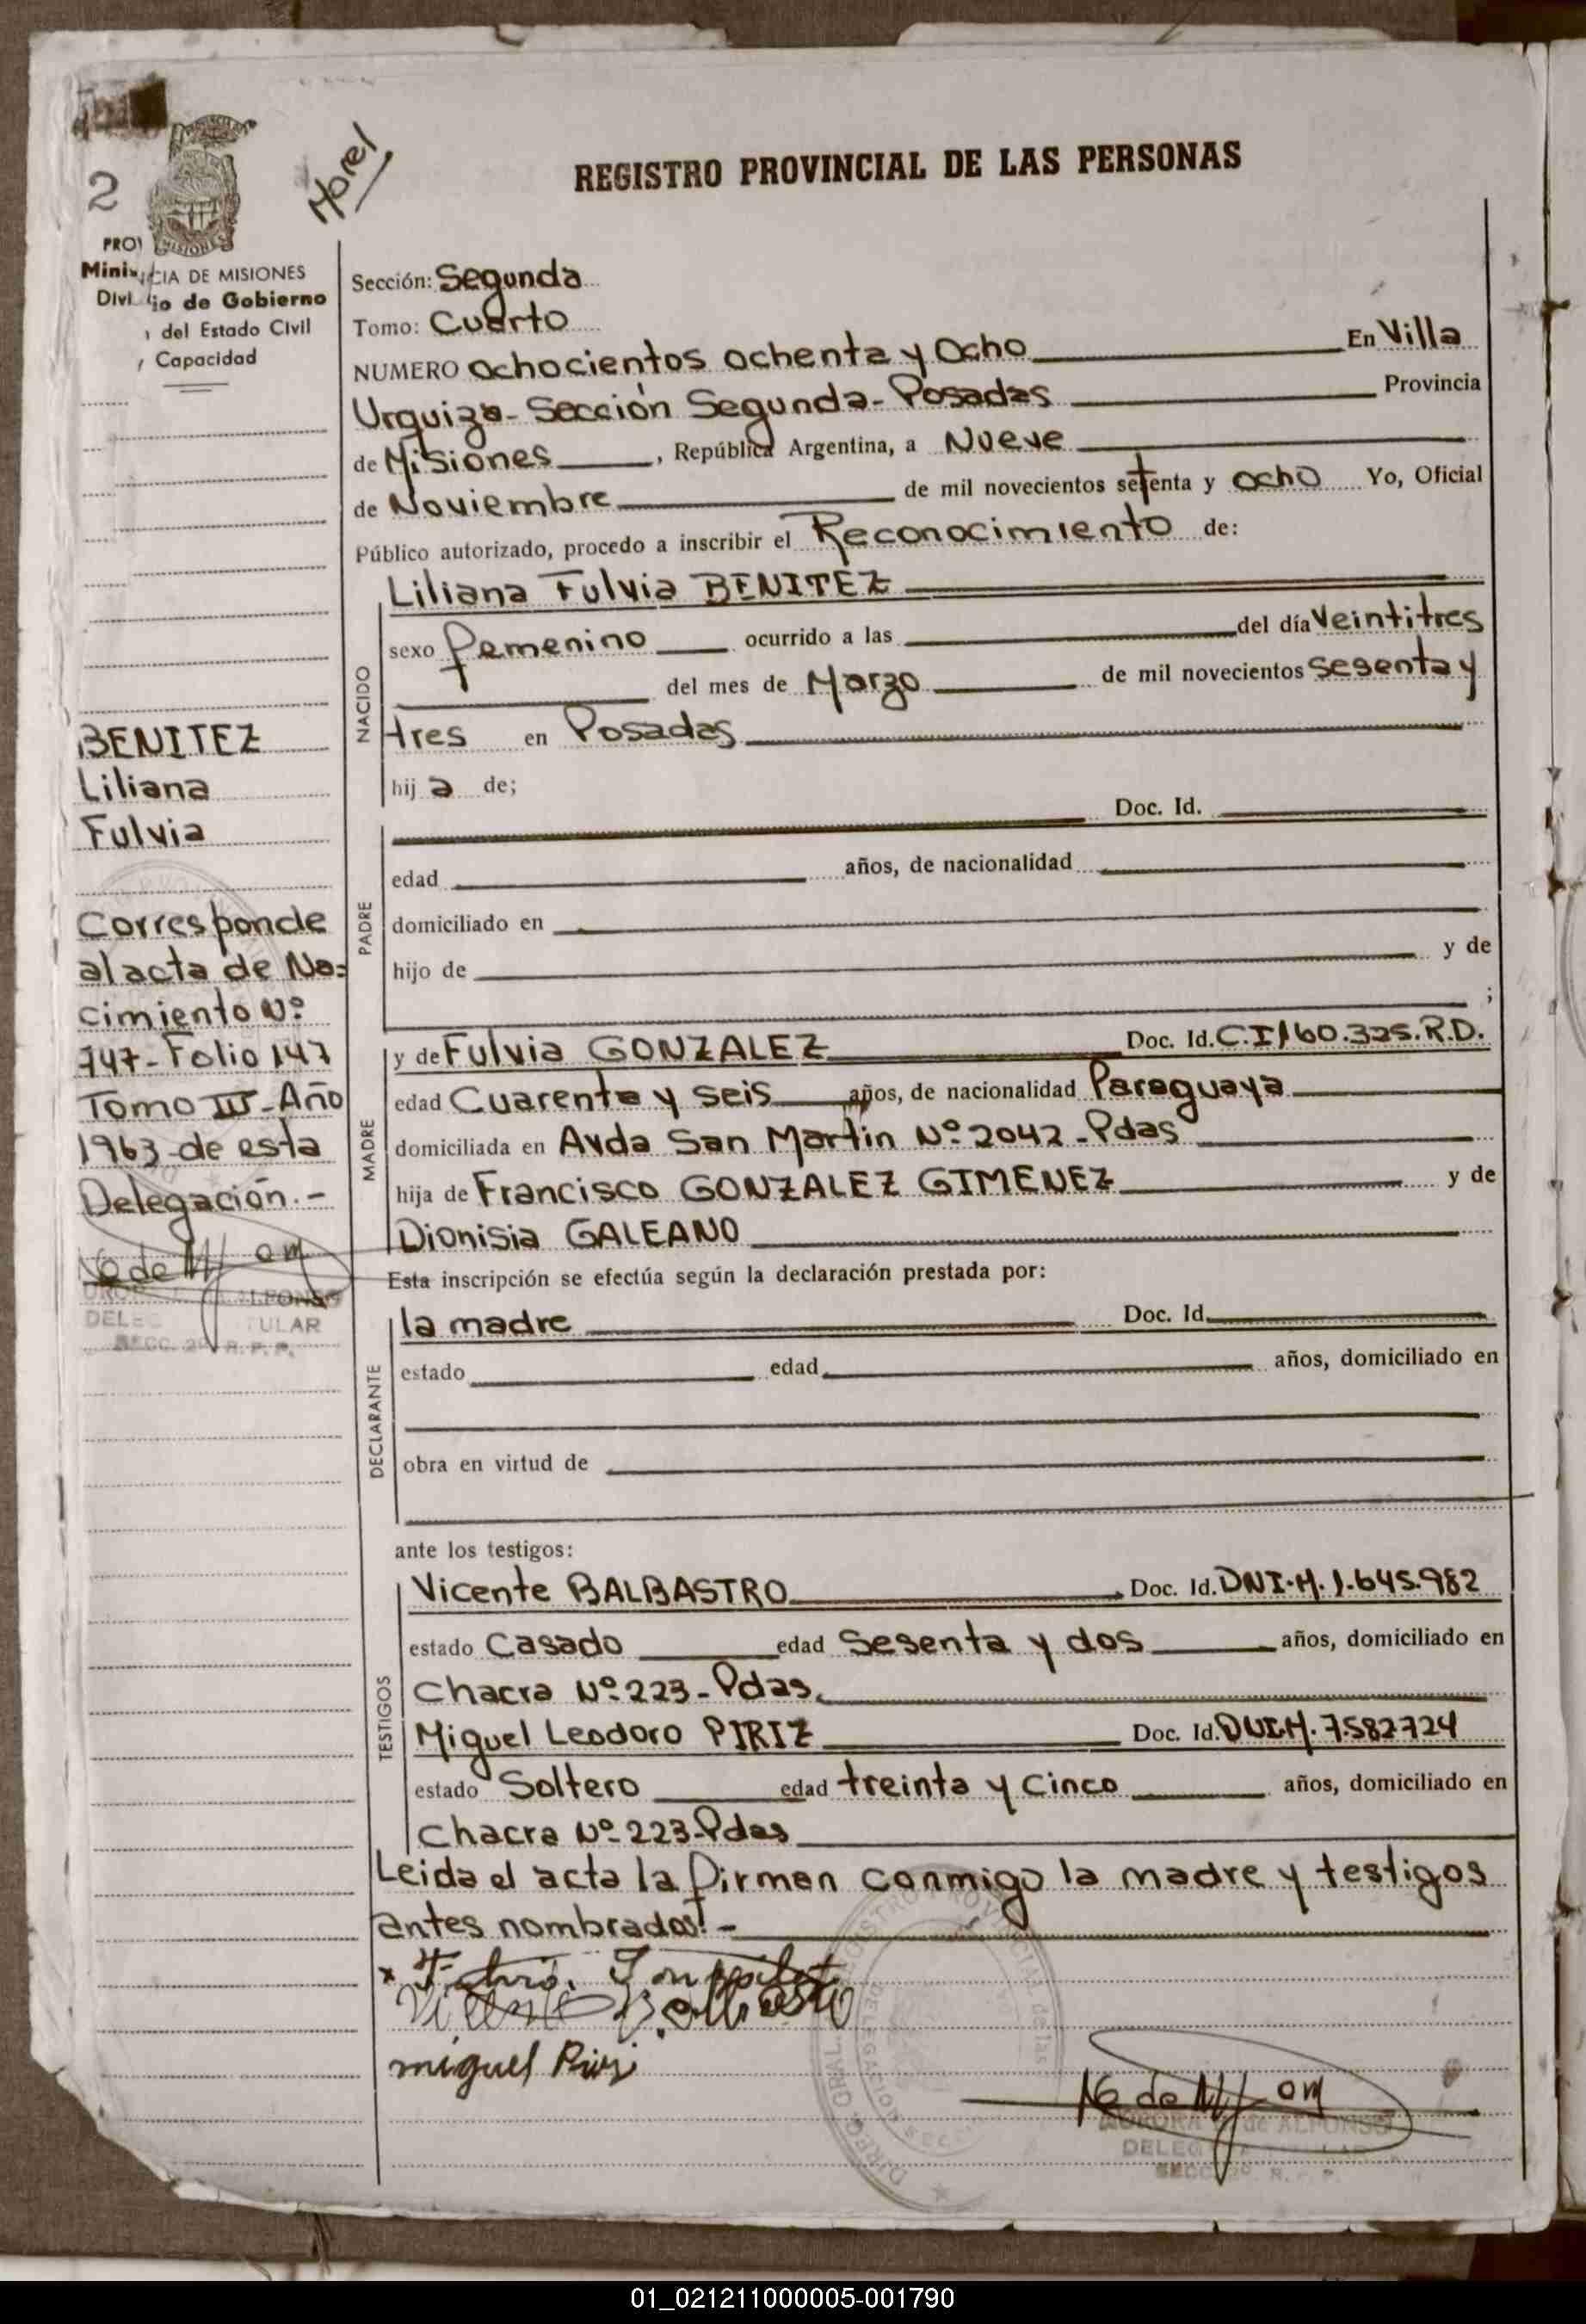 2
Morel
REGISTRO PROVINCIAL DE LAS PERSONAS
PROV
MISIONES
CIA DE MISIONES
io de Gobierno
del Estado Civil
Capacidad
Sección: Segunda
Tomo: Cuarto
NUMERO Ochocientos ochenta y Ocho En Villa
Urquiza - Sección Segunda - Posadas Provincia
de Misiones, República Argentina, a Nueve
de Noviembre de mil novecientos setenta y ocho Yo, Oficial
Público autorizado, procedo a inscribir el Reconocimiento de:
NACIDO
Liliana Fulvia BENITEZ
sexo femenino ocurrido a las del día Veintitres
del mes de Marzo de mil novecientos sesenta y
tres en Posadas
hij a de;
BENITEZ
Liliana
Fulvia
Corresponde
al acta de Na=
cimiento Nº
747 - Folio 147
Tomo III - Año
1963 - de esta
Delegación. -
ALFONSO
DELE ULAR
SECC. 2º R. P. P.
PADRE
Doc. Id.
edad años, de nacionalidad
domiciliado en
hijo de y de
;
MADRE
y de Fulvia GONZALEZ Doc. Id. C.I 160.325. R.D.
edad Cuarenta y seis años, de nacionalidad Paraguaya
domiciliada en Avda San Martin Nº 2042 - Pdas
hija de Francisco GONZALEZ GIMENEZ y de
Dionisia GALEANO
Esta inscripción se efectúa según la declaración prestada por:
DECLARANTE
la madre Doc. Id.
estado edad años, domiciliado en
obra en virtud de
ante los testigos:
TESTIGOS
Vicente BALBASTRO Doc. Id. DNI. M. 1.645.982
estado Casado edad Sesenta y dos años, domiciliado en
Chacra Nº 223 - Pdas.
Miguel Leodoro PIRIZ Doc. Id. DNI. M. 7.582.724
estado Soltero edad treinta y cinco años, domiciliado en
Chacra Nº 223 - Pdas
Leida el acta la firman conmigo la madre y testigos
antes nombrados! -
x Fulvia Gonzalez
Vicente Balbastro
miguel Piriz
AURORA de ALFONSO
SECC. 2º R. P. P.
01_021211000005-001790